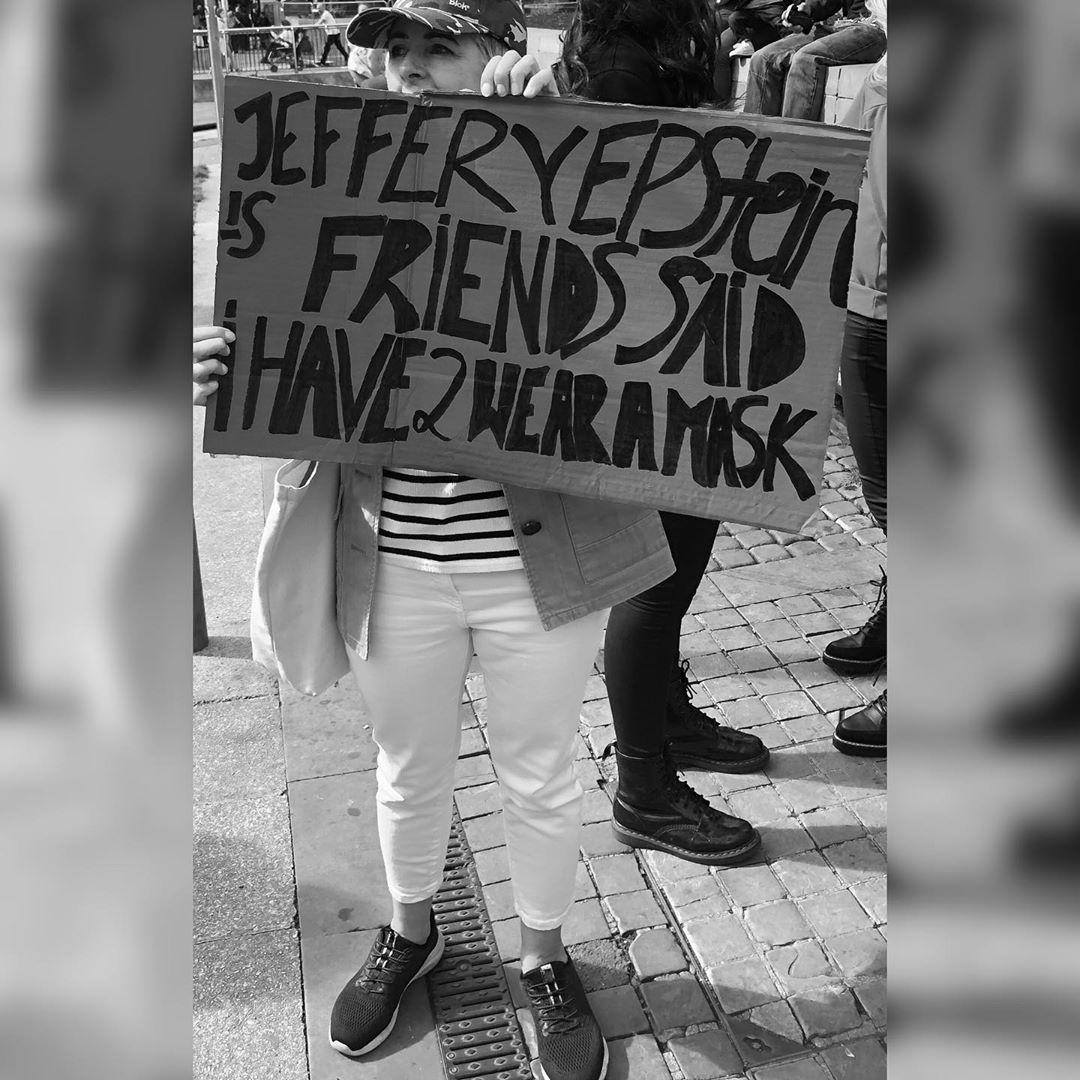 blok
JEFFERY EPStein
iS FRiENDS SAiD
i HAVE 2 WEAR A MASK